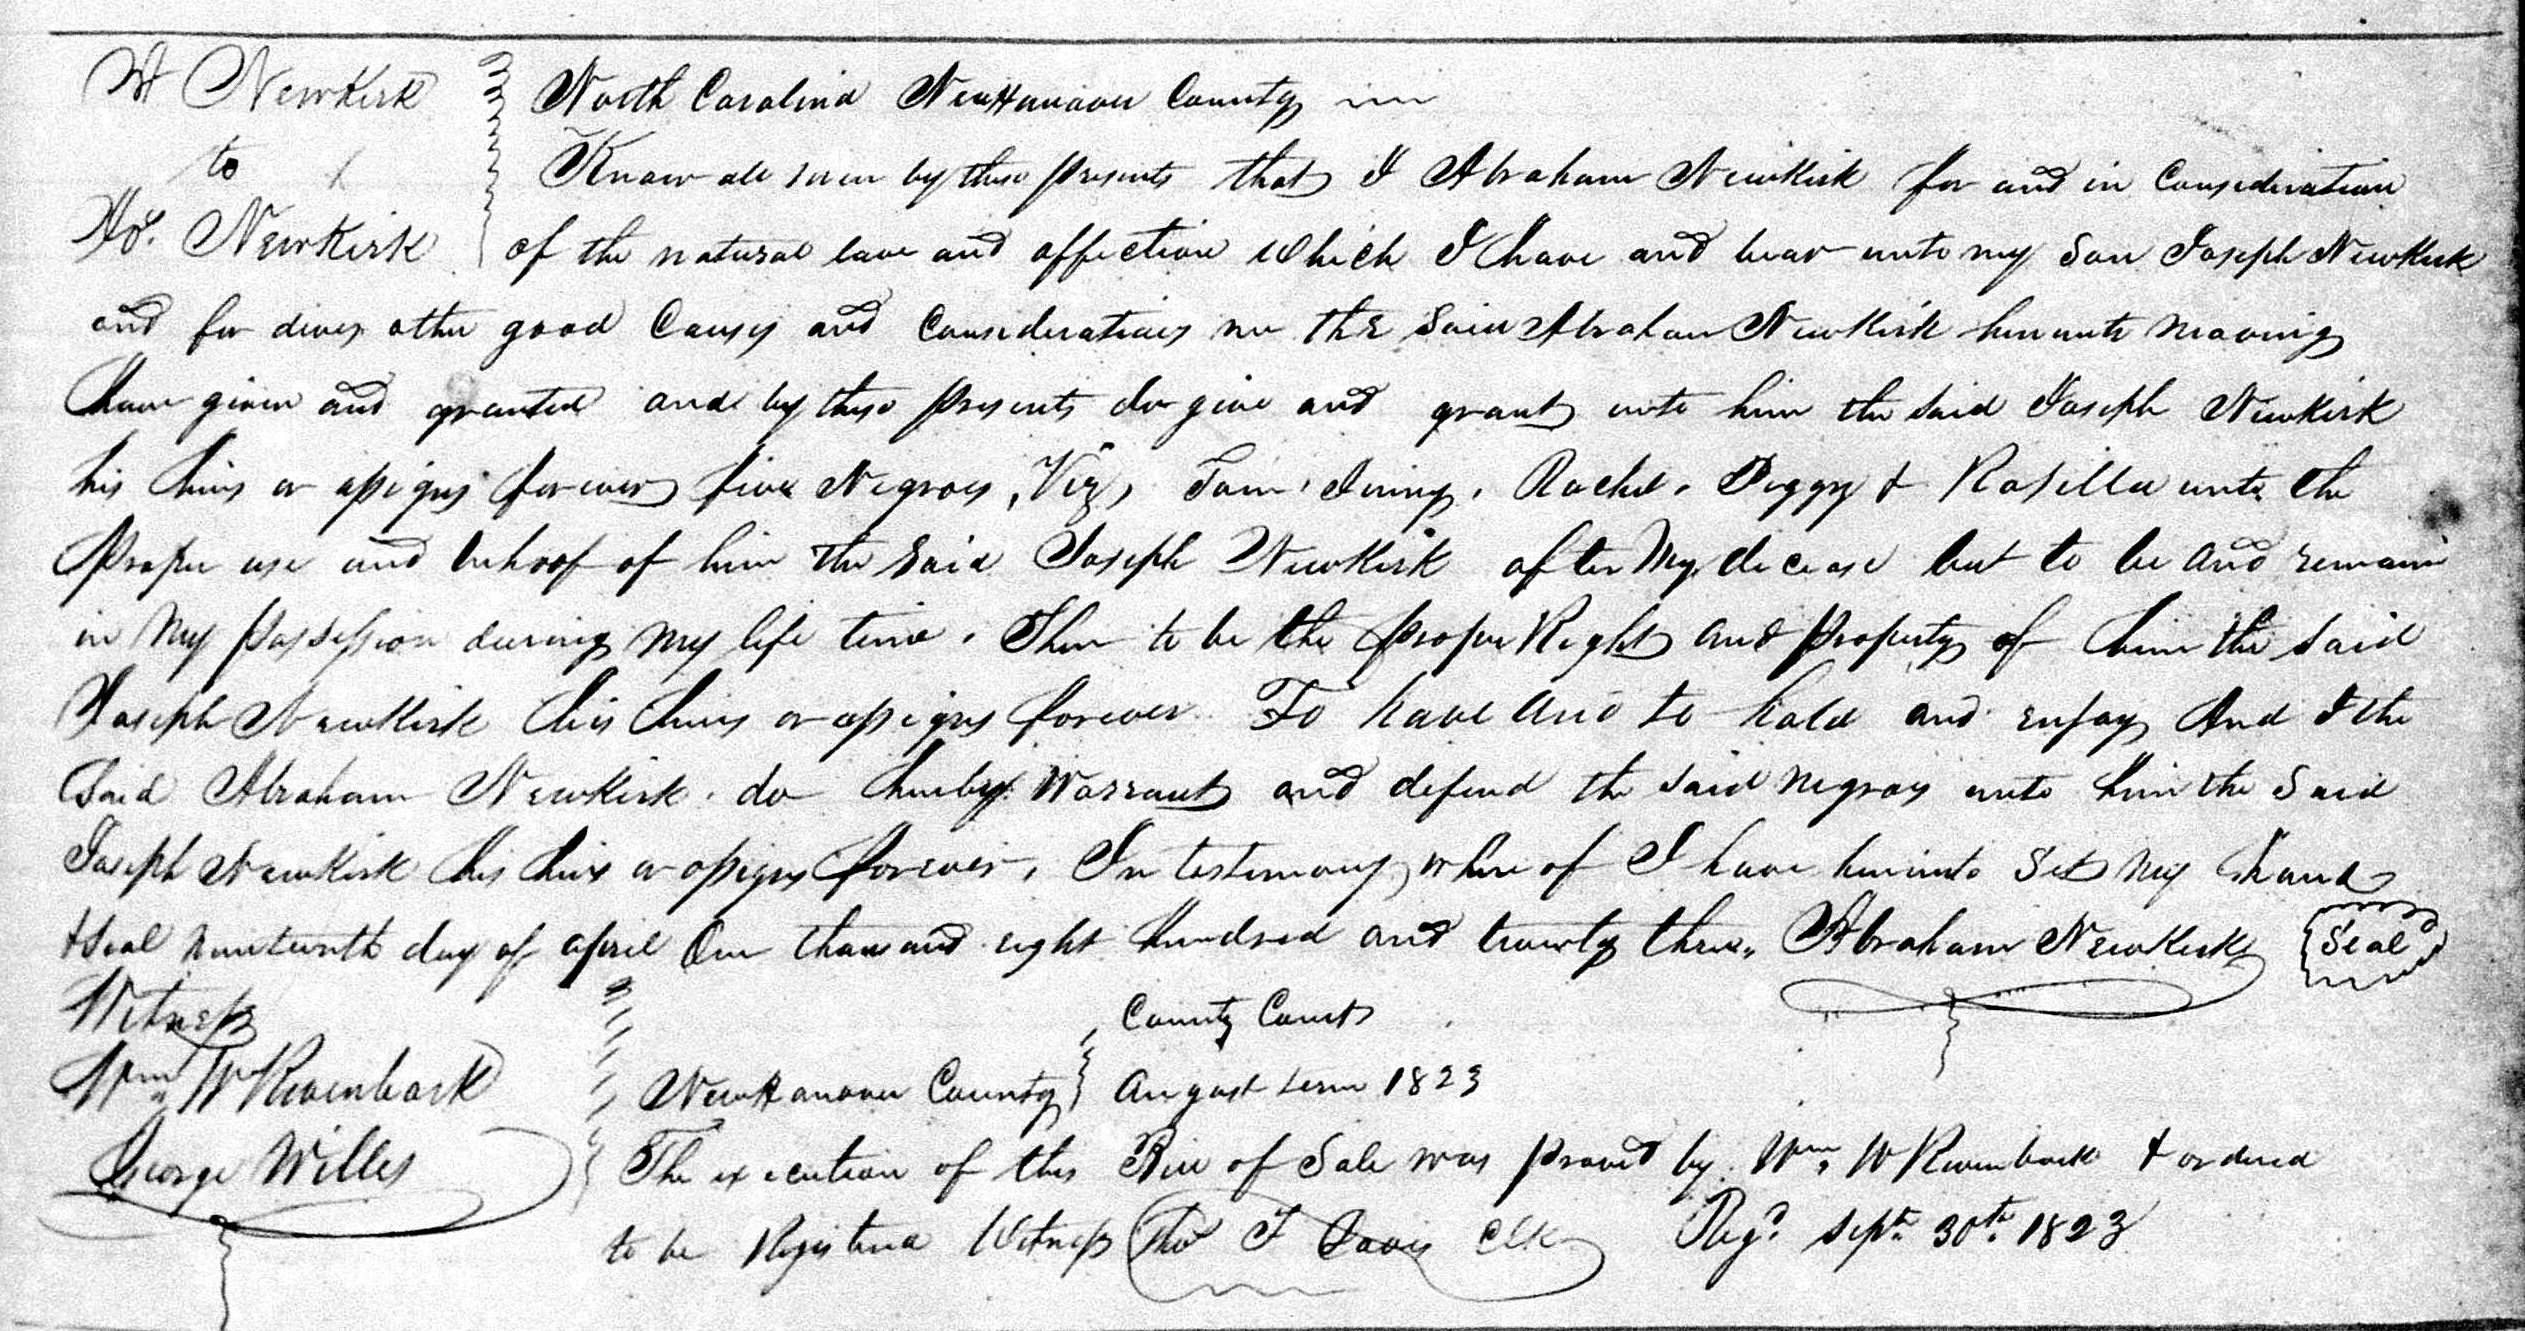 A Newkirk
to
Jos. Newkirk
North Carolina New Hanover County
Know all men by these presents that I Abraham Newkirk for and in Consideration
of the natural love and affection which I have and bear unto my Son Joseph Newkirk
and for divers other good Causes and Considerations me the Said Abraham Newkirk hereunto moving
have given and granted and by these presents do give and grant unto him the said Joseph Newkirk
his heirs or assigns forever five Negroes, Viz, Tom, Jinny, Rachel, Peggy & Rosilla unto the
proper use and behoof of him the Said Joseph Newkirk after My decease but to be and remain
in My possession during My life time. Then to be the proper Right and property of him the Said
Joseph Newkirk his heirs or assigns forever. To have and to hold and enjoy And I the
Said Abraham Newkirk do hereby Warrant and defend the said Negroes unto him the Said
Joseph Newkirk his heirs or assigns forever, In testimony where of I have hereunto Set My hand
& Seal nineteenth day of april One thousand eight hundred and twenty three. Abraham Newkirk Seal
Witness
Wm W Rivenbark
George Willes
County Court
New Hanover County August term 1823
The execution of this Bill of Sale was proved by Wm W Rivenbark & ordered
to be Registered Witness Tho F Davis Clk Regd Septr 30th 1823